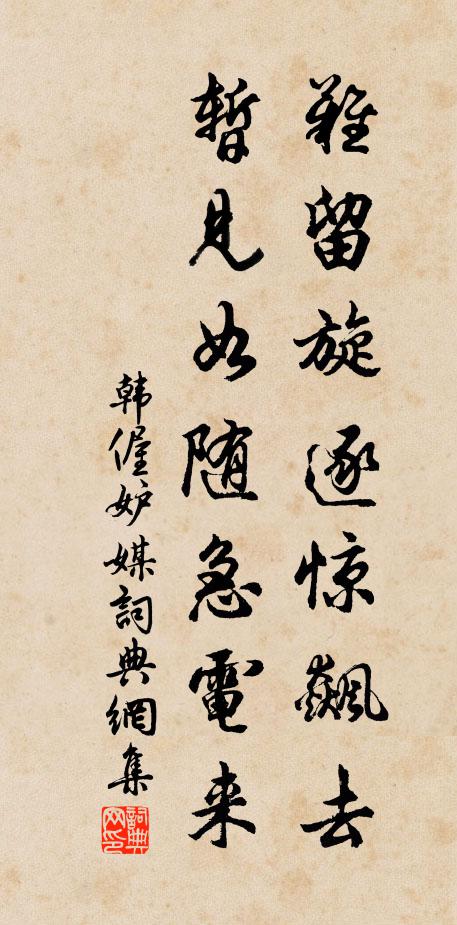 難留旋逐惊飙去
暫見如随急電来
韩偓妒媒詞典網集
詞典网印